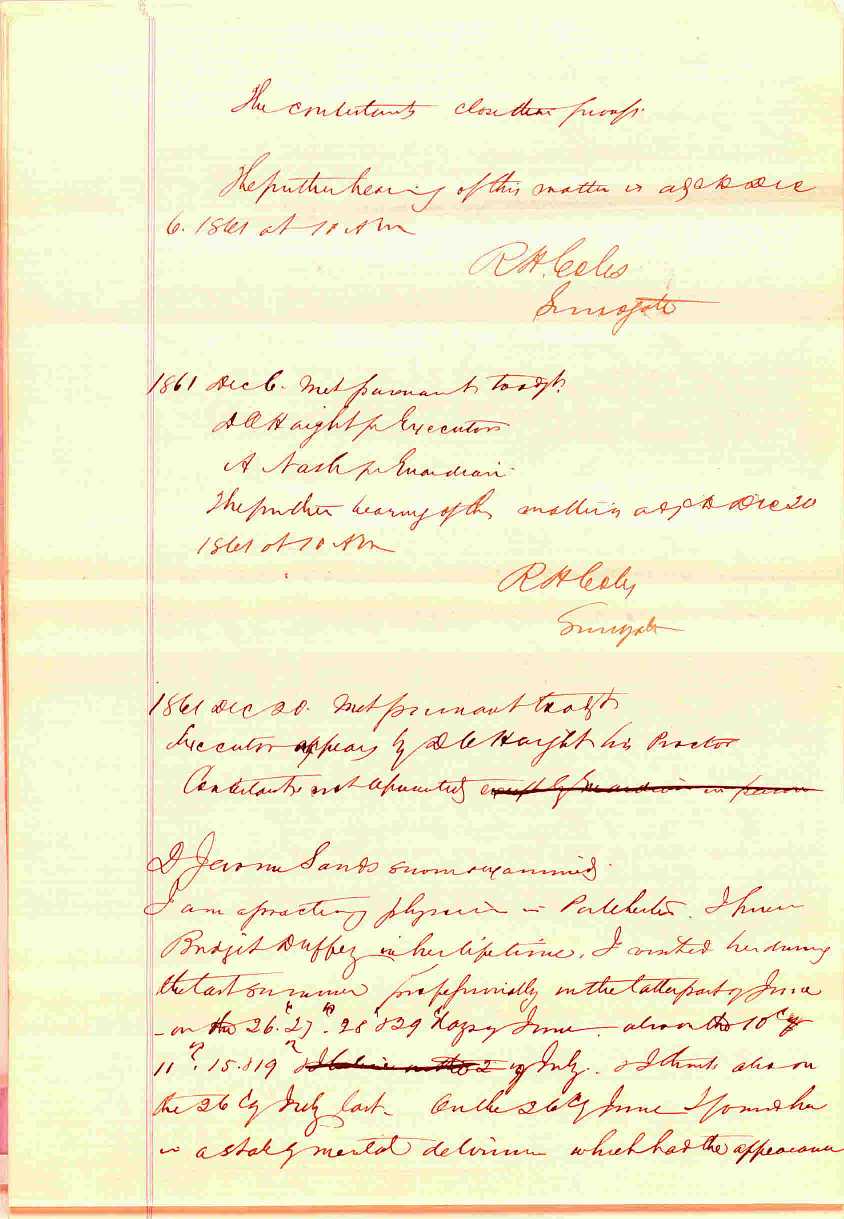 The contestants close their proofs.
The further hearing of this matter is adjd to Dec
6. 1861 at 10 A M
R H. Coles
Surrogate
1861 Dec 6. Met pursuant to adjt.
D C Haight for Executors
A Nash for Guardian
The further hearing of this matter is adjd to Dec 20
1861 at 10 A M
R H Coles
Surrogate
1861 Dec 20. Met pursuant to adjt
Executor appears by D C Haight his Proctor
Contestants not appearing except by Guardian in person
D Jerome Sands sworn & examined.
I am a practicing physician in Portchester. I knew
Bridget Duffey in her lifetime. I visited her during
the last summer professionally in the latter part of June
- on the 26th 27th 28th & 29th days of June also on the 10th &
11th 15 & 19th of July. & I think also on
the 26th of July last. On the 26th of June I found her
in a state of mental delirium which had the appearance